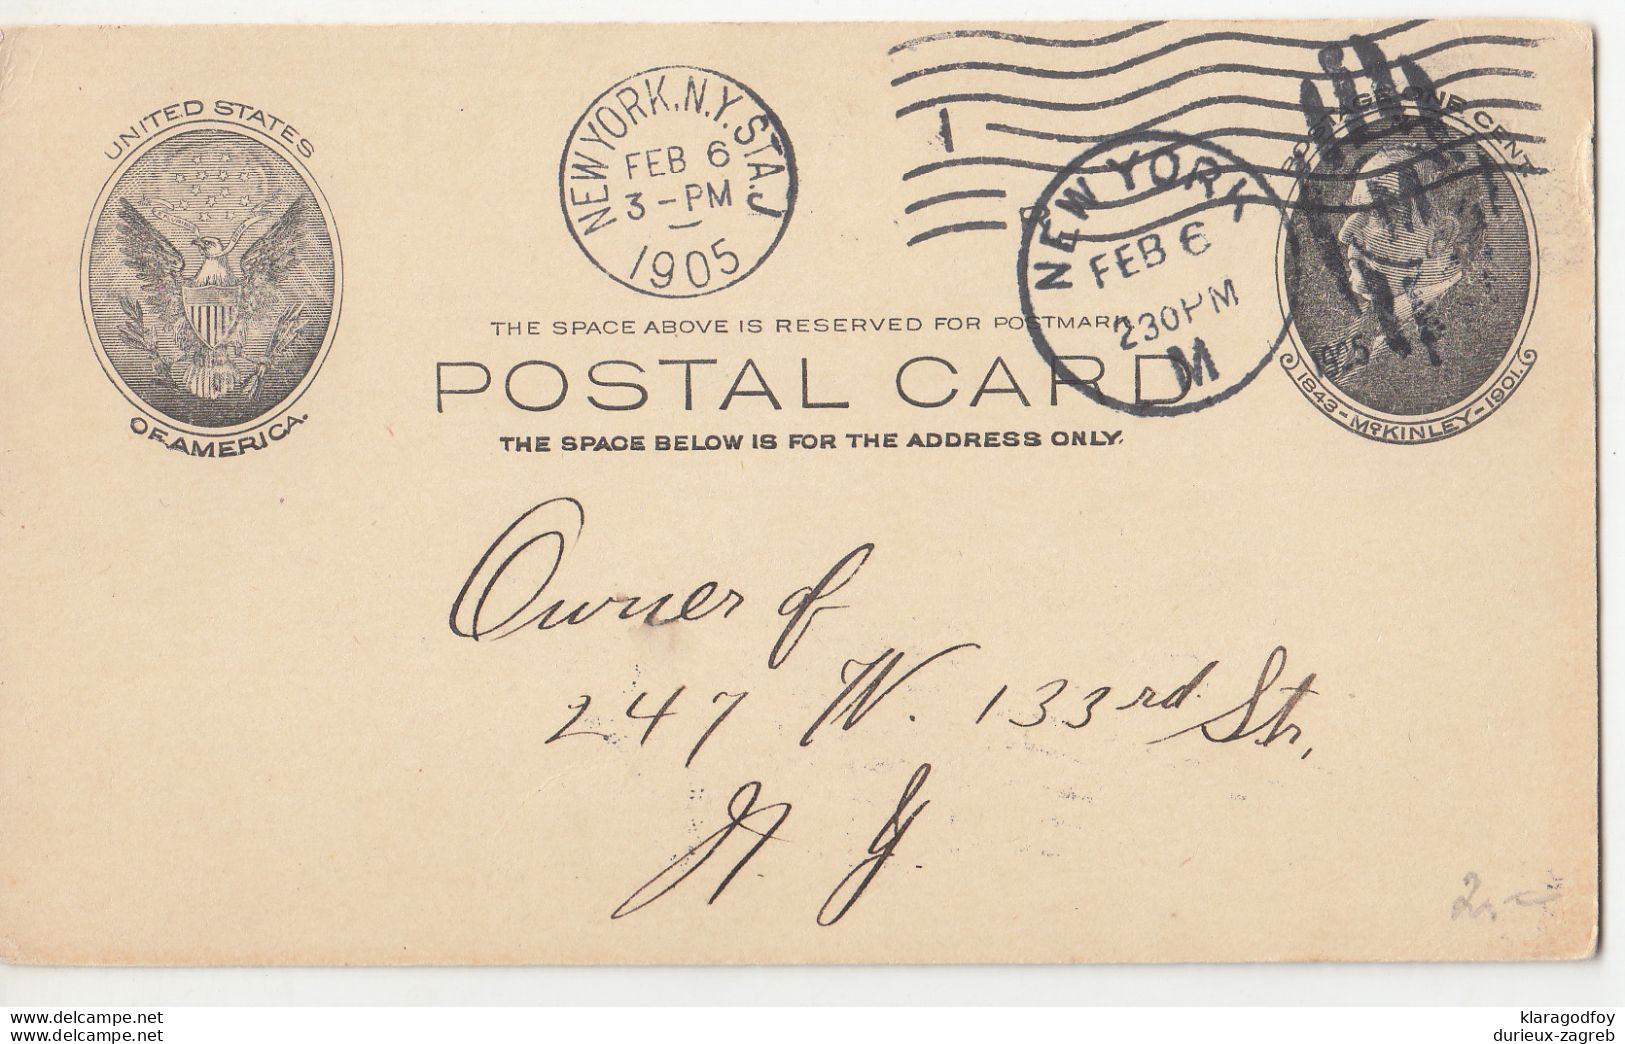 UNITED STATES
OF AMERICA.
NEW YORK, N.Y. STA. J
FEB 6
3-PM
1905
1
NEW YORK
FEB 6
230PM
1905
M
POSTAGE ONE CENT
1843-McKINLEY-1901.
THE SPACE ABOVE IS RESERVED FOR POSTMARK.
POSTAL CARD
THE SPACE BELOW IS FOR THE ADDRESS ONLY.
Owner of
247 W. 133rd Str,
N. Y.
www.delcampe.net
www.delcampe.net
klaragodfoy
durieux-zagreb